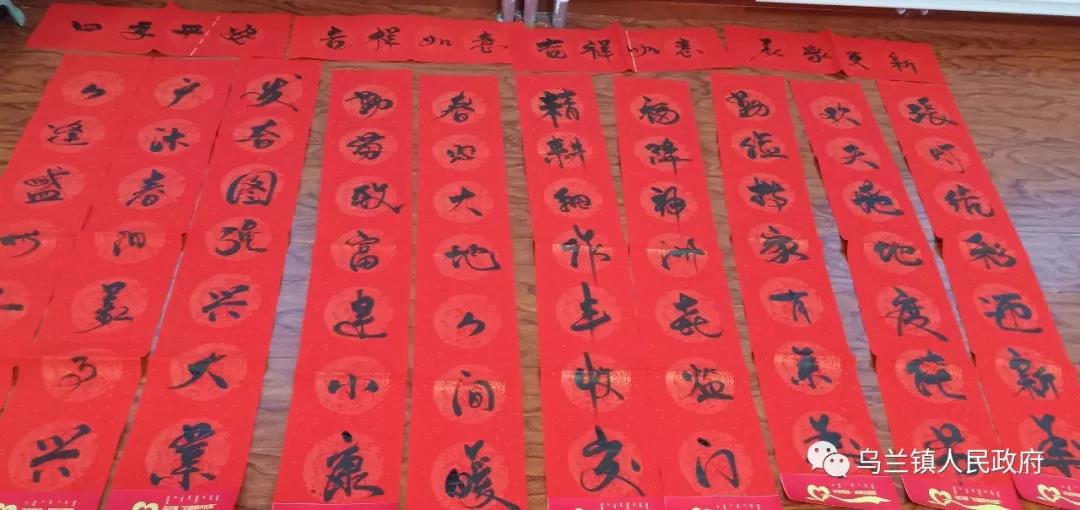 四季平安
吉祥如意
吉祥如意
更新
逢盛
户沐春阳
兴
发奋图强兴大业
勤劳致富建小康
春回大地人间暖
精耕细作丰收岁
福降神洲喜盈门
勤俭持家有
欢天喜地度佳
张灯结彩迎新
乌兰镇人民政府